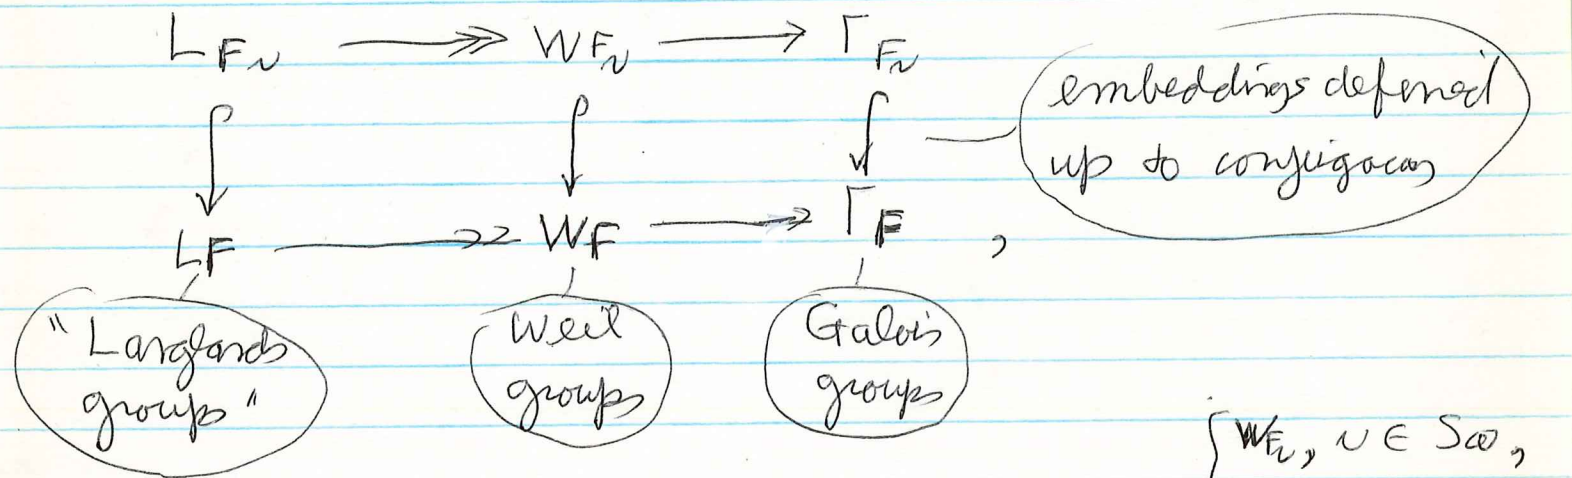 L_{F_v} ↠ W_{F_v} → Γ_{F_v}
embeddings defined
up to conjugacy
L_F ↠ W_F → Γ_F ,
"Langlands
groups"
Weil
groups
Galois
groups
{ W_{F_v}, v ∈ S_∞,